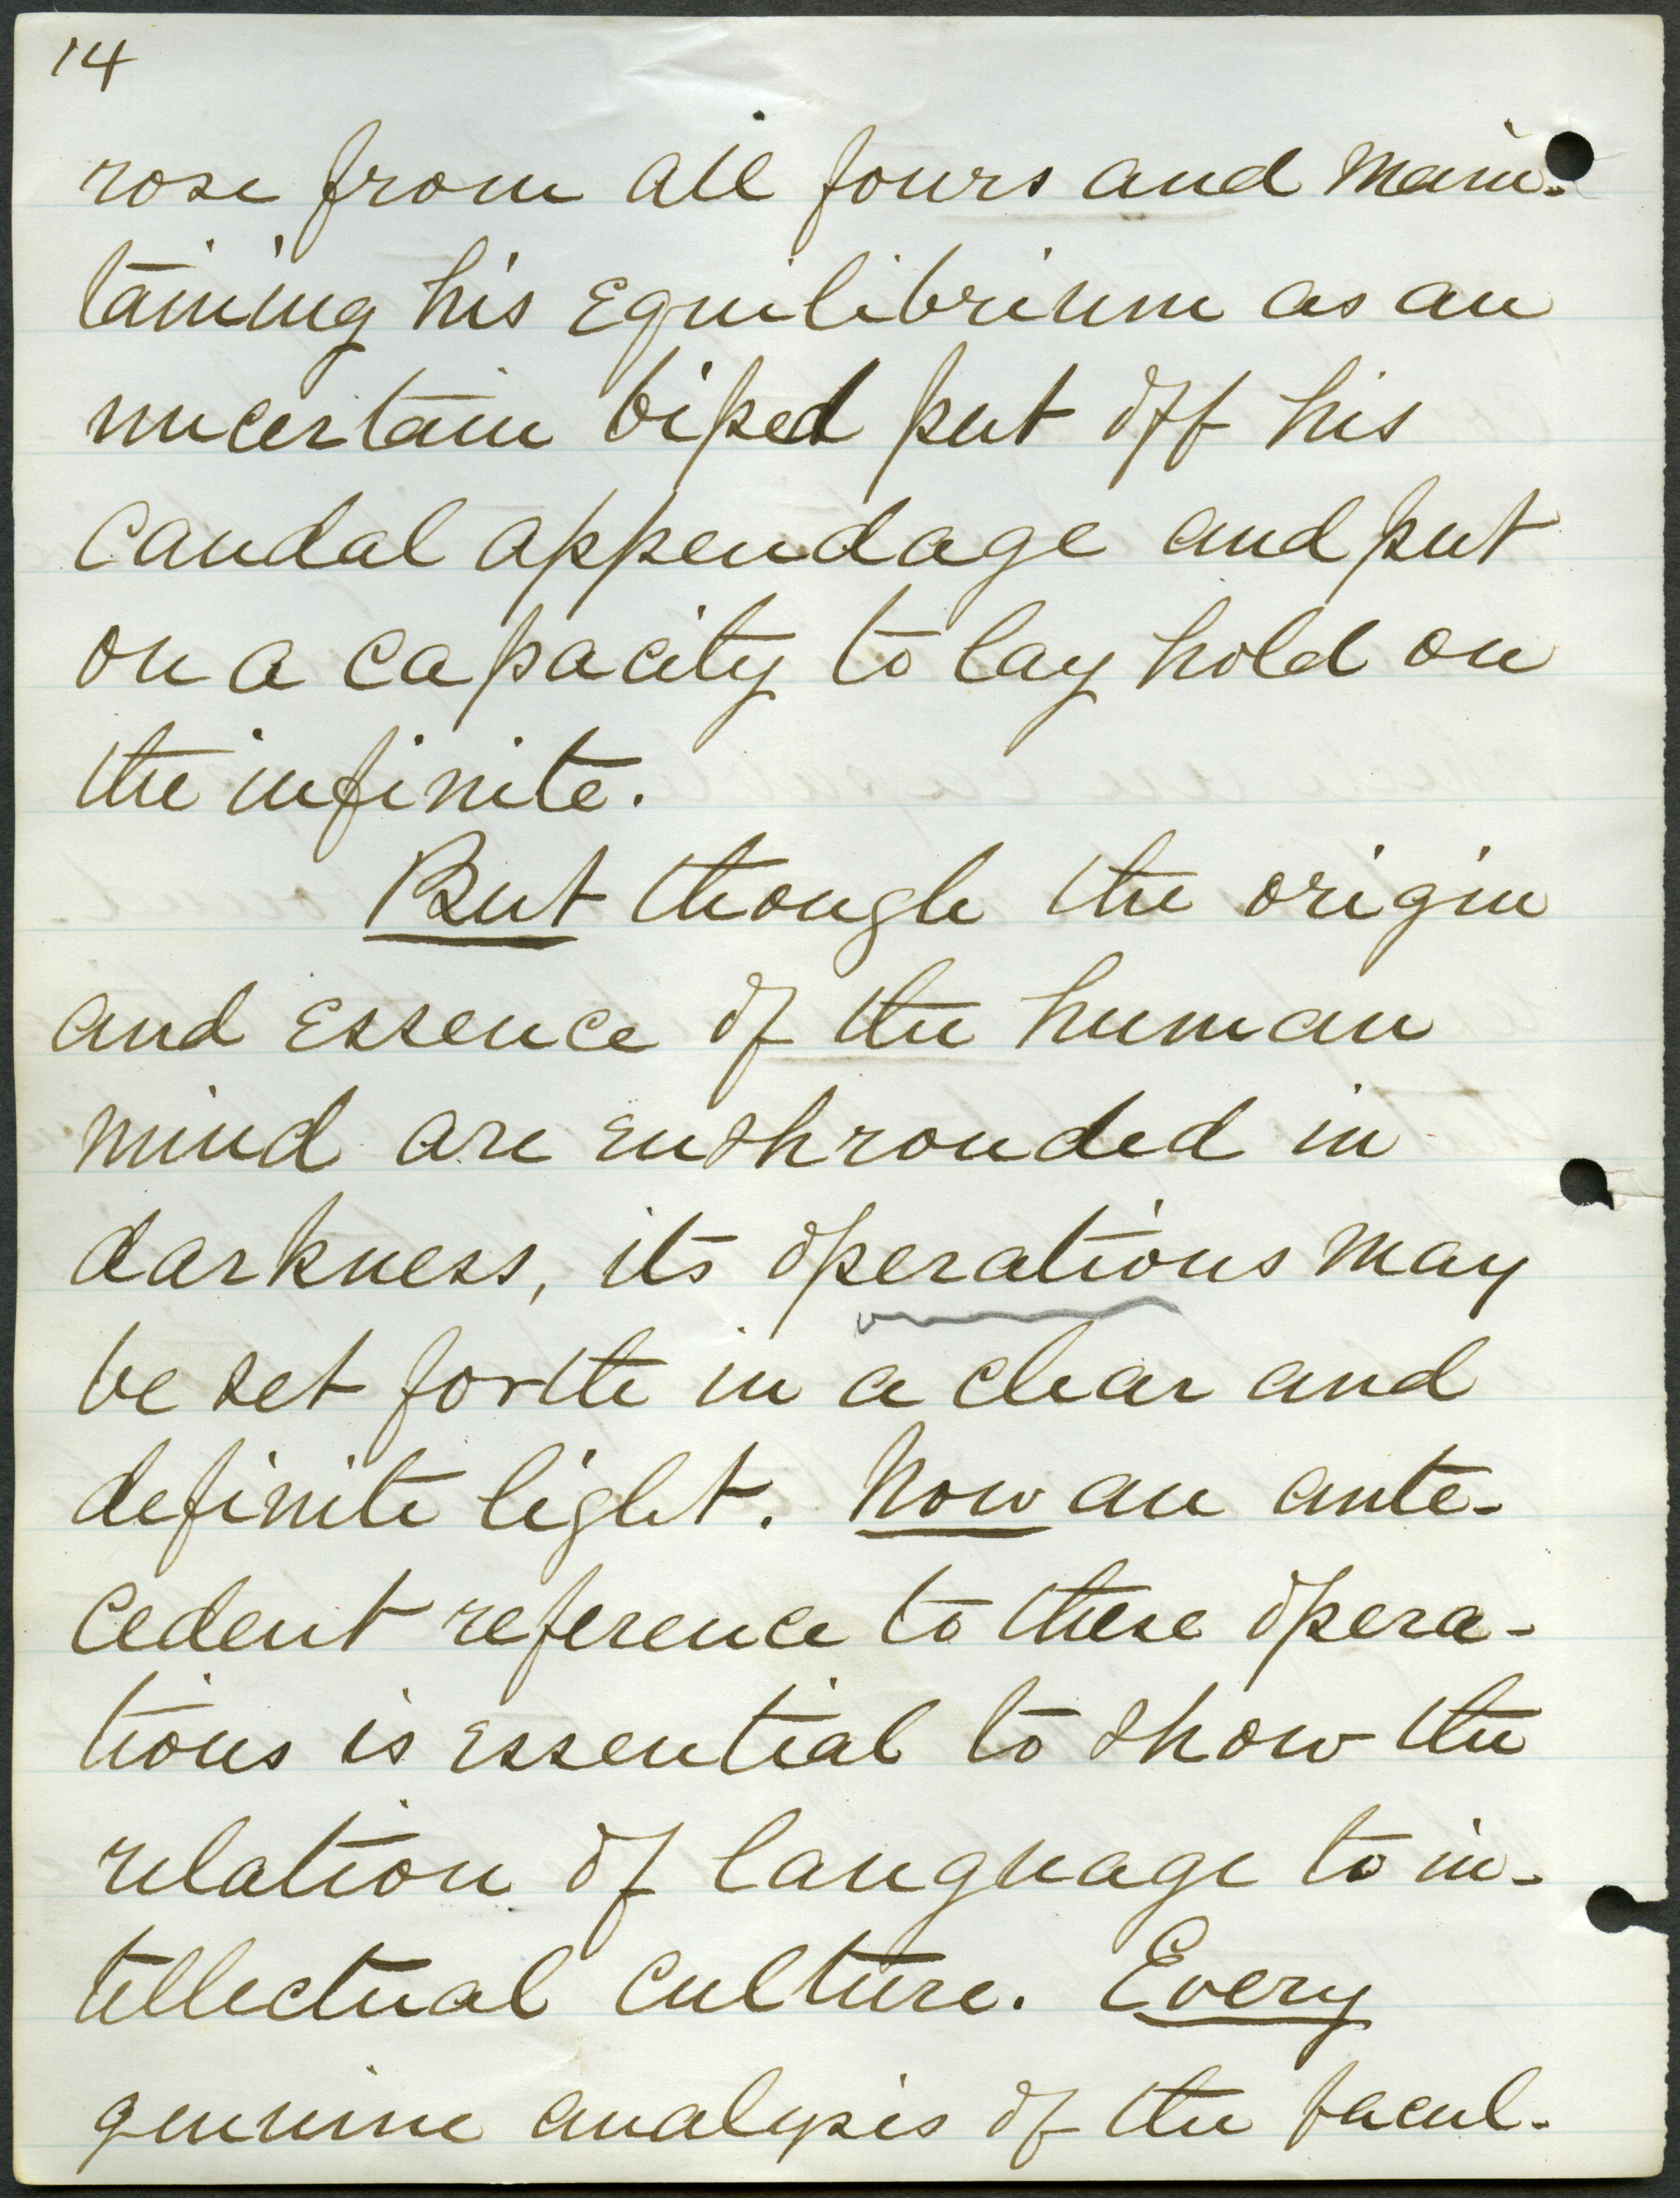 14
rose from all fours and main-
taining his equilibrium as an
uncertain biped put off his
caudal appendage and put
on a capacity to lay hold on
the infinite.
But though the origin
and essence of the human
mind are enshrouded in
darkness, its operations may
be set forth in a clear and
definite light. Now an ante-
cedent reference to these opera-
tions is essential to show the
relation of language to in-
tellectual culture. Every
genuine analysis of the facul-